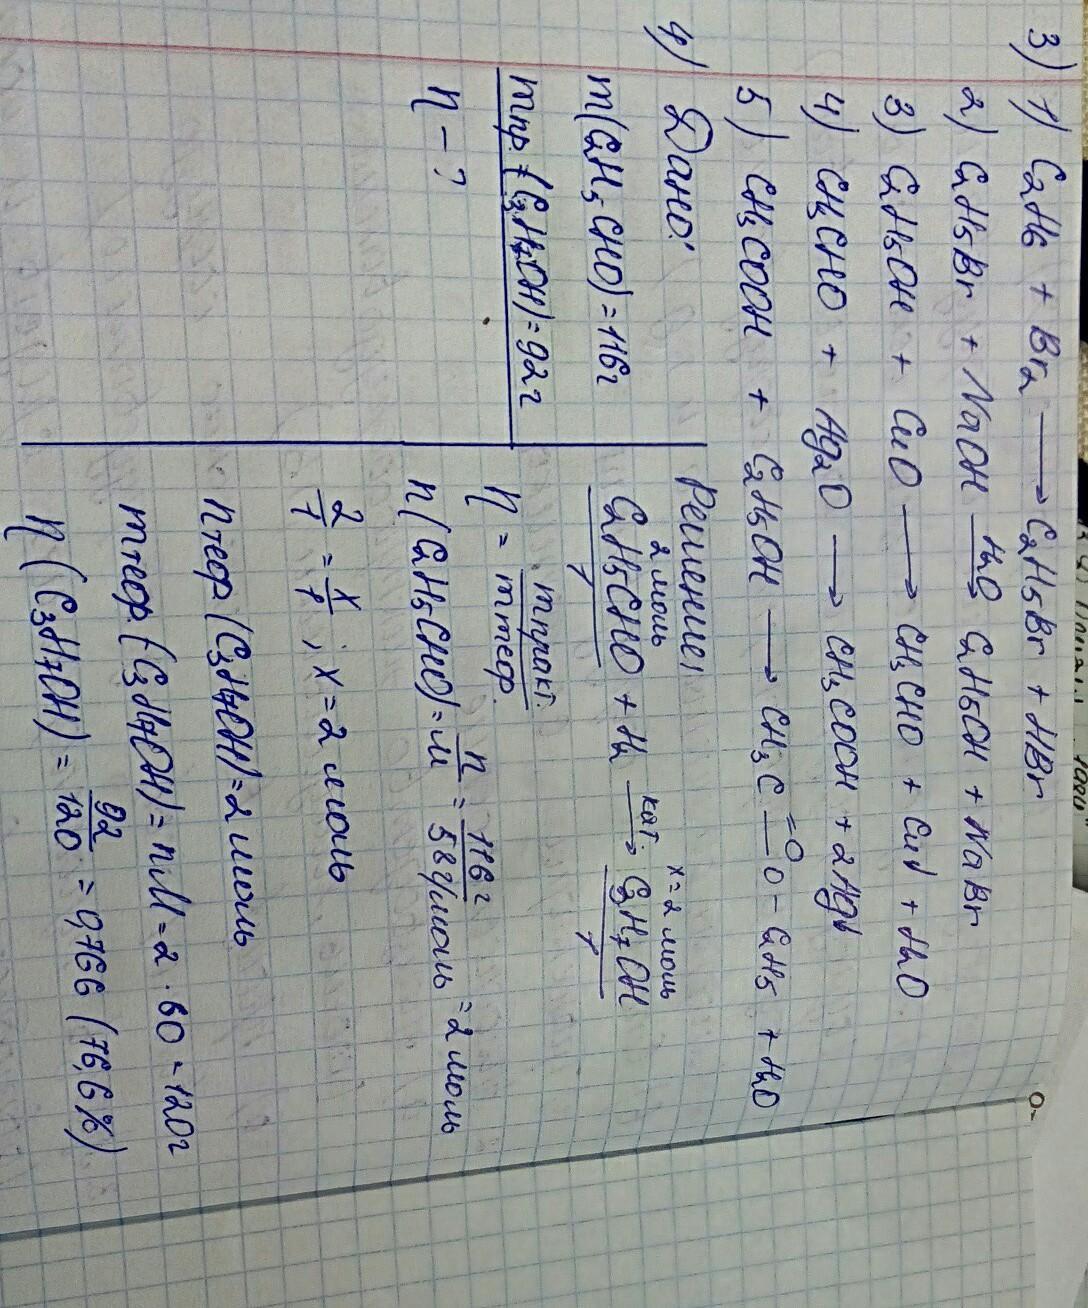 3) 1) C2H6 + Br2 ⟶ C2H5Br + HBr
2) C2H5Br + NaOH ⟶(H2O) C2H5OH + NaBr
3) C2H5OH + CuO ⟶ CH3CHO + Cu↓ + H2O
4) CH3CHO + Ag2O ⟶ CH3COOH + 2Ag↓
5) CH3COOH + C2H5OH ⟶ CH3C=O–O–C2H5 + H2O
4) Дано:
m(C2H5CHO)=116г
mпр.(C3H7OH)=92г
η – ?
Решение:
2моль x=2 моль
C2H5CHO + H2 ⟶(кат.) C3H7OH
1 1
η = mпракт. / mтеор.
n(C2H5CHO)= n/M = 116г / 58г/моль = 2 моль
2/1 = x/1 ; x = 2 моль
nтеор.(C3H7OH)=2моль
mтеор.(C3H7OH)= nM = 2 · 60 = 120г
η (C3H7OH) = 92/120 = 0,766 (76,6%)